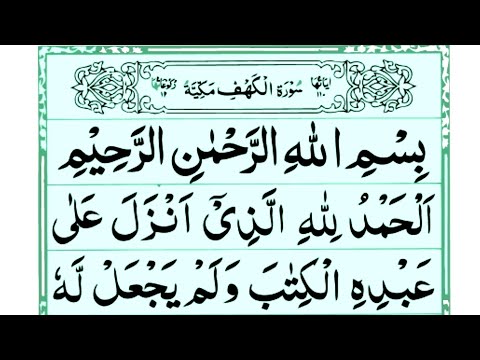 اٰيَاتُهَا ١١٠ سُوْرَةُ الْكَهْفِ مَكِّيَّةٌ رُكُوْعَاتُهَا ١٢
بِسْمِ اللّٰهِ الرَّحْمٰنِ الرَّحِيْمِ
اَلْحَمْدُ لِلّٰهِ الَّذِيْۤ اَنْزَلَ عَلٰى
عَبْدِهِ الْكِتٰبَ وَلَمْ يَجْعَلْ لَّهٗ